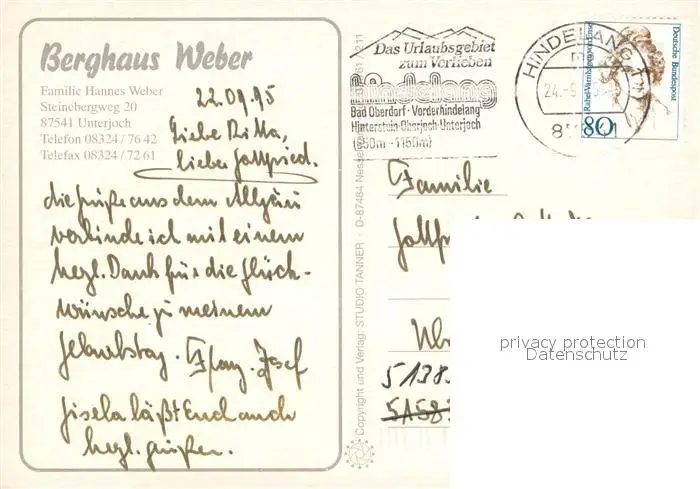 Berghaus Weber
Familie Hannes Weber
Steinebergweg 20
87541 Unterjoch
Telefon 08324/76 42
Telefax 08324/72 61
22.09.95
Liebe Ritta,
lieber Gottfried.
die Grüße aus dem Allgäu
verbinde ich mit einem
herzl. Dank für die Glück-
wünsche zu meinem
Geburtstag. Franz-Josef
Gisela läßt Euch auch
herzl. grüßen.
Copyright und Verlag: STUDIO TANNER · D-87484
Das Urlaubsgebiet
zum Verlieben
hindelang
Bad Oberdorf · Vorderhindelang
Hinterstein-Oberjoch-Unterjoch
(850m - 1150m)
HINDELANG
24.-9.
Deutsche Bundespost
Rahel Varnhagen von Ense
80
Familie
5138
privacy protection
Datenschutz